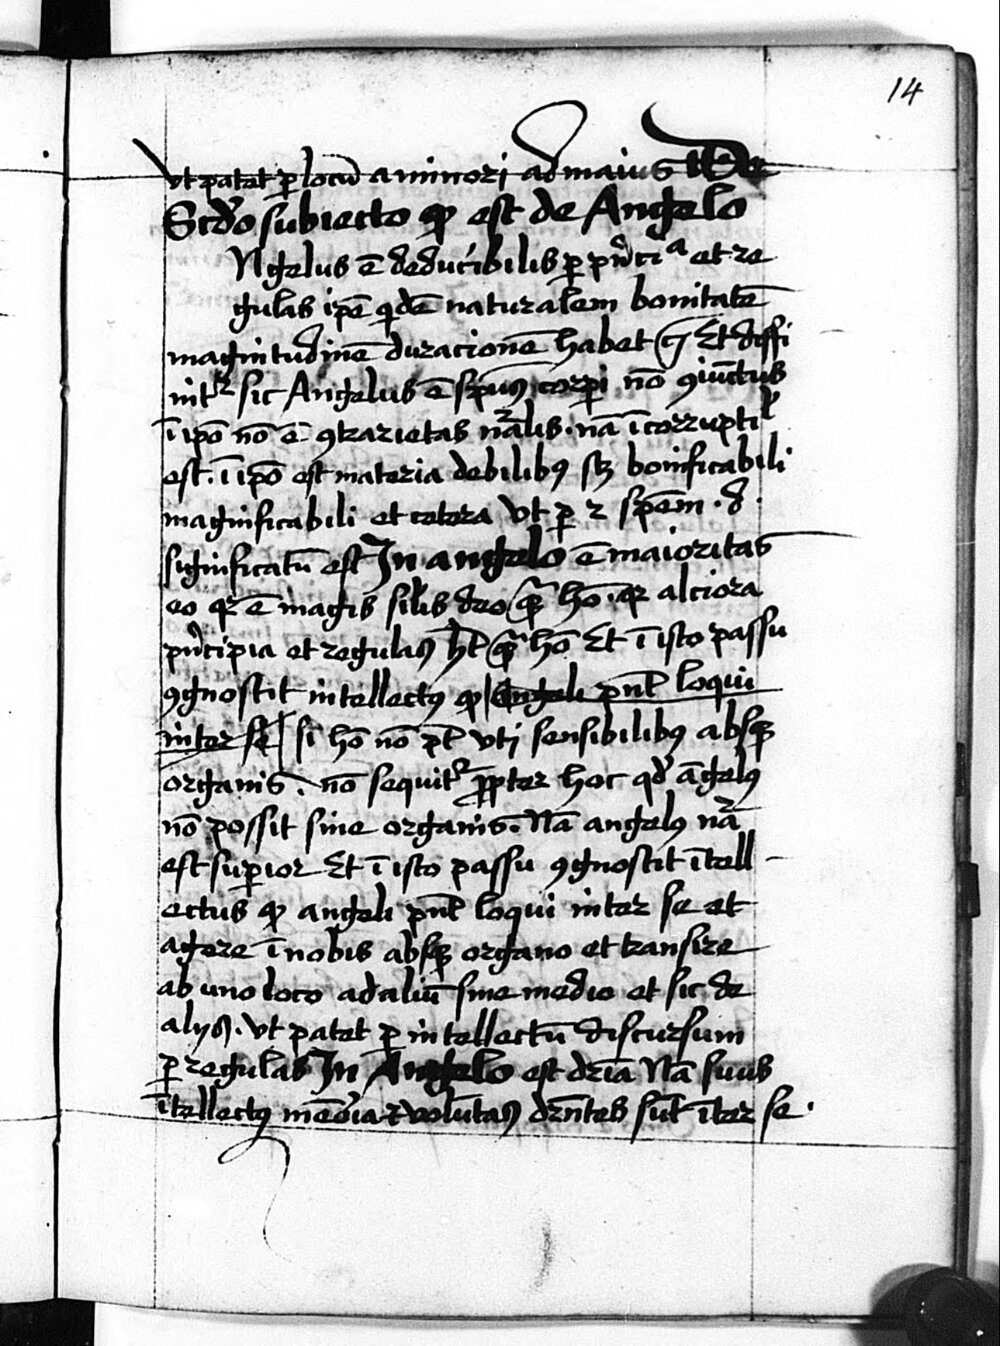 14
vt patet ꝑ locū a minori ad maius De
Scd̓o subiecto ꝙ est de Angelo
Ngelus ē deducibilis ꝑ pn̓ciᵃ et re
gulas ip̄e qͥdē naturalem bonitatē
magnitudinē duracionē habet ⁊ꝯ Et diffi
nitͬ sic Angelus ē sp̄us corpi nō ꝯiūctus
ī ip̄o nō ē ꝯtrarietas nāͬlis · nā īcorruptiˡ
est · ī ip̄o est materia debilibꝰ sꝫ bonificabili
magnificabili et cetera vt ꝑ 2 sp̄em · d ·
significatū est In angelo ē maioritas
eo qꝛ ē magis sil̄is deo qͣꝫ hō · qꝛ alciora
pn̓cipia et regulas hꝫ̄t qͣꝫ hō Et ī isto passu
ꝯgnoscit intellectꝰ ꝙ Angeli pn̄t loqui
inter se si hō nō pt̄ vti sensibilibꝰ absqꝫ
organis · nō sequitͬ ꝓpter hoc qd̓ āgelꝰ
nō possit sine organis · Nā angelꝰ nāͬ
est suꝑior Et ī isto passu ꝯgnoscit ītell
ectus ꝙ angeli pn̄t loqui inter se et
agere ī nobis absqꝫ organo et transire
ab uno loco ad aliū sine medio et sic de
alijs · vt patet ꝑ intellectū discursum
ꝑ regulas In Angelo est dr̄ia Nā suus
ītellectꝰ memōia ⁊ volūtas dr̄ntes sūt īter se ·